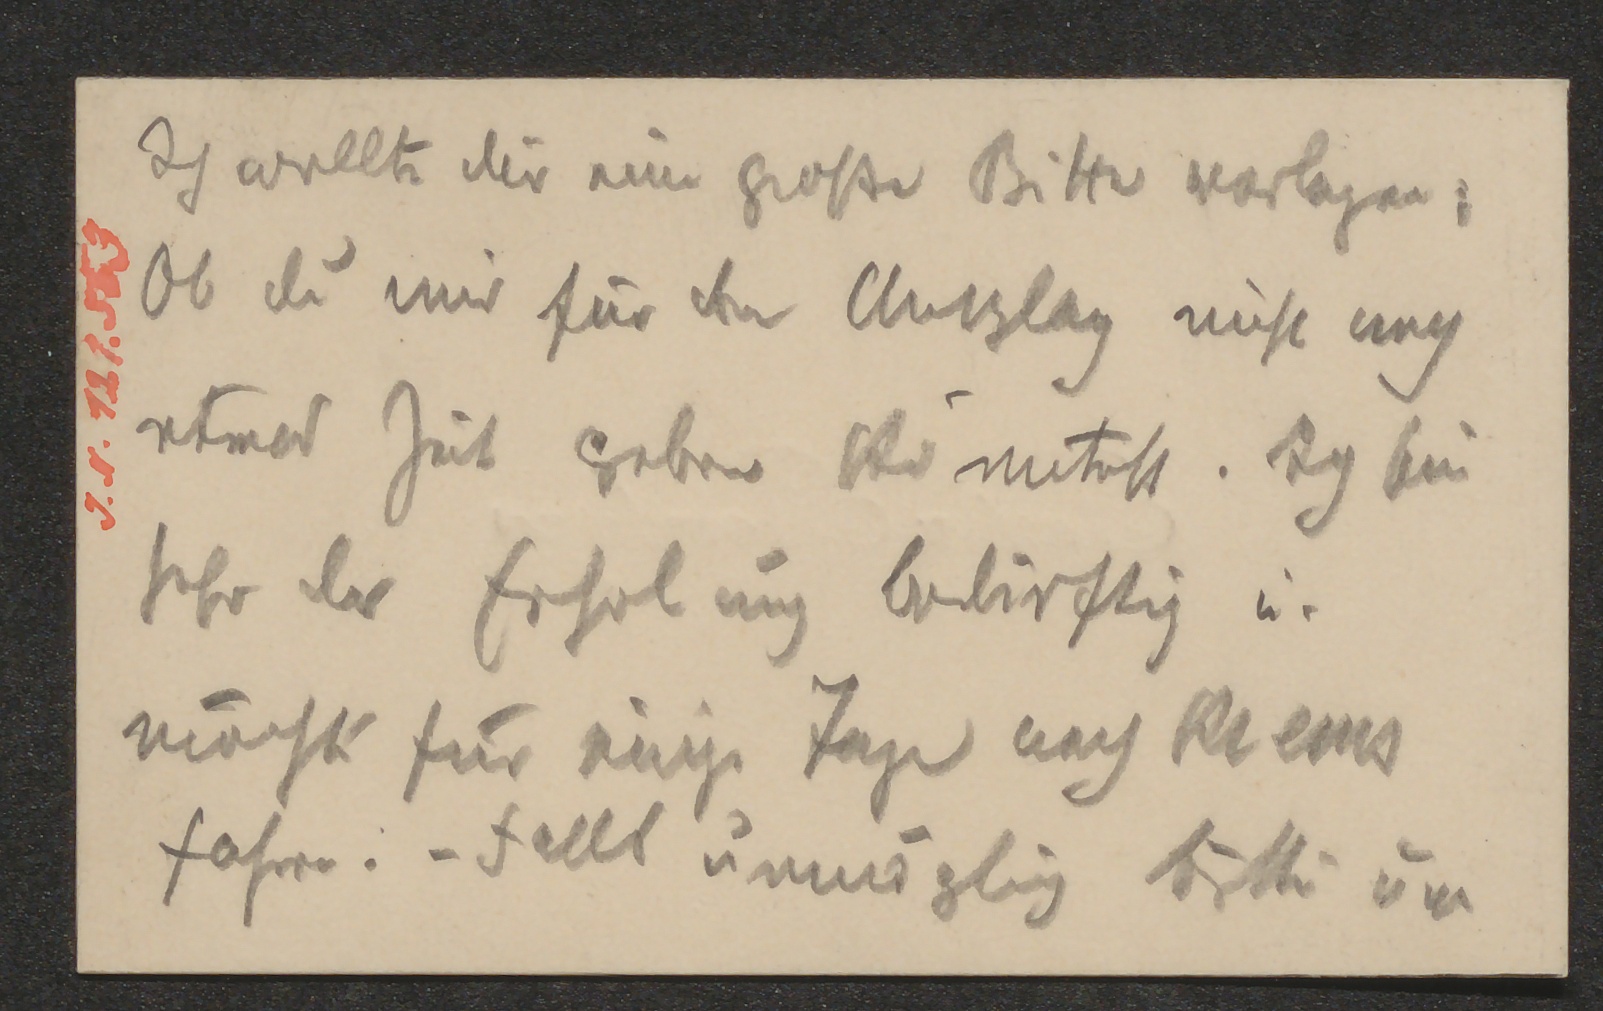 Ich wollte dir eine große Bitte vorlegen:
Ob du mir für den Umschlag nicht noch
etwas Zeit geben könntest. Ich bin
sehr der Erholung bedürftig u.
möchte für einige Tage nach Krems
fahren. - Falls unmöglich bitte um
J. N. 121.553